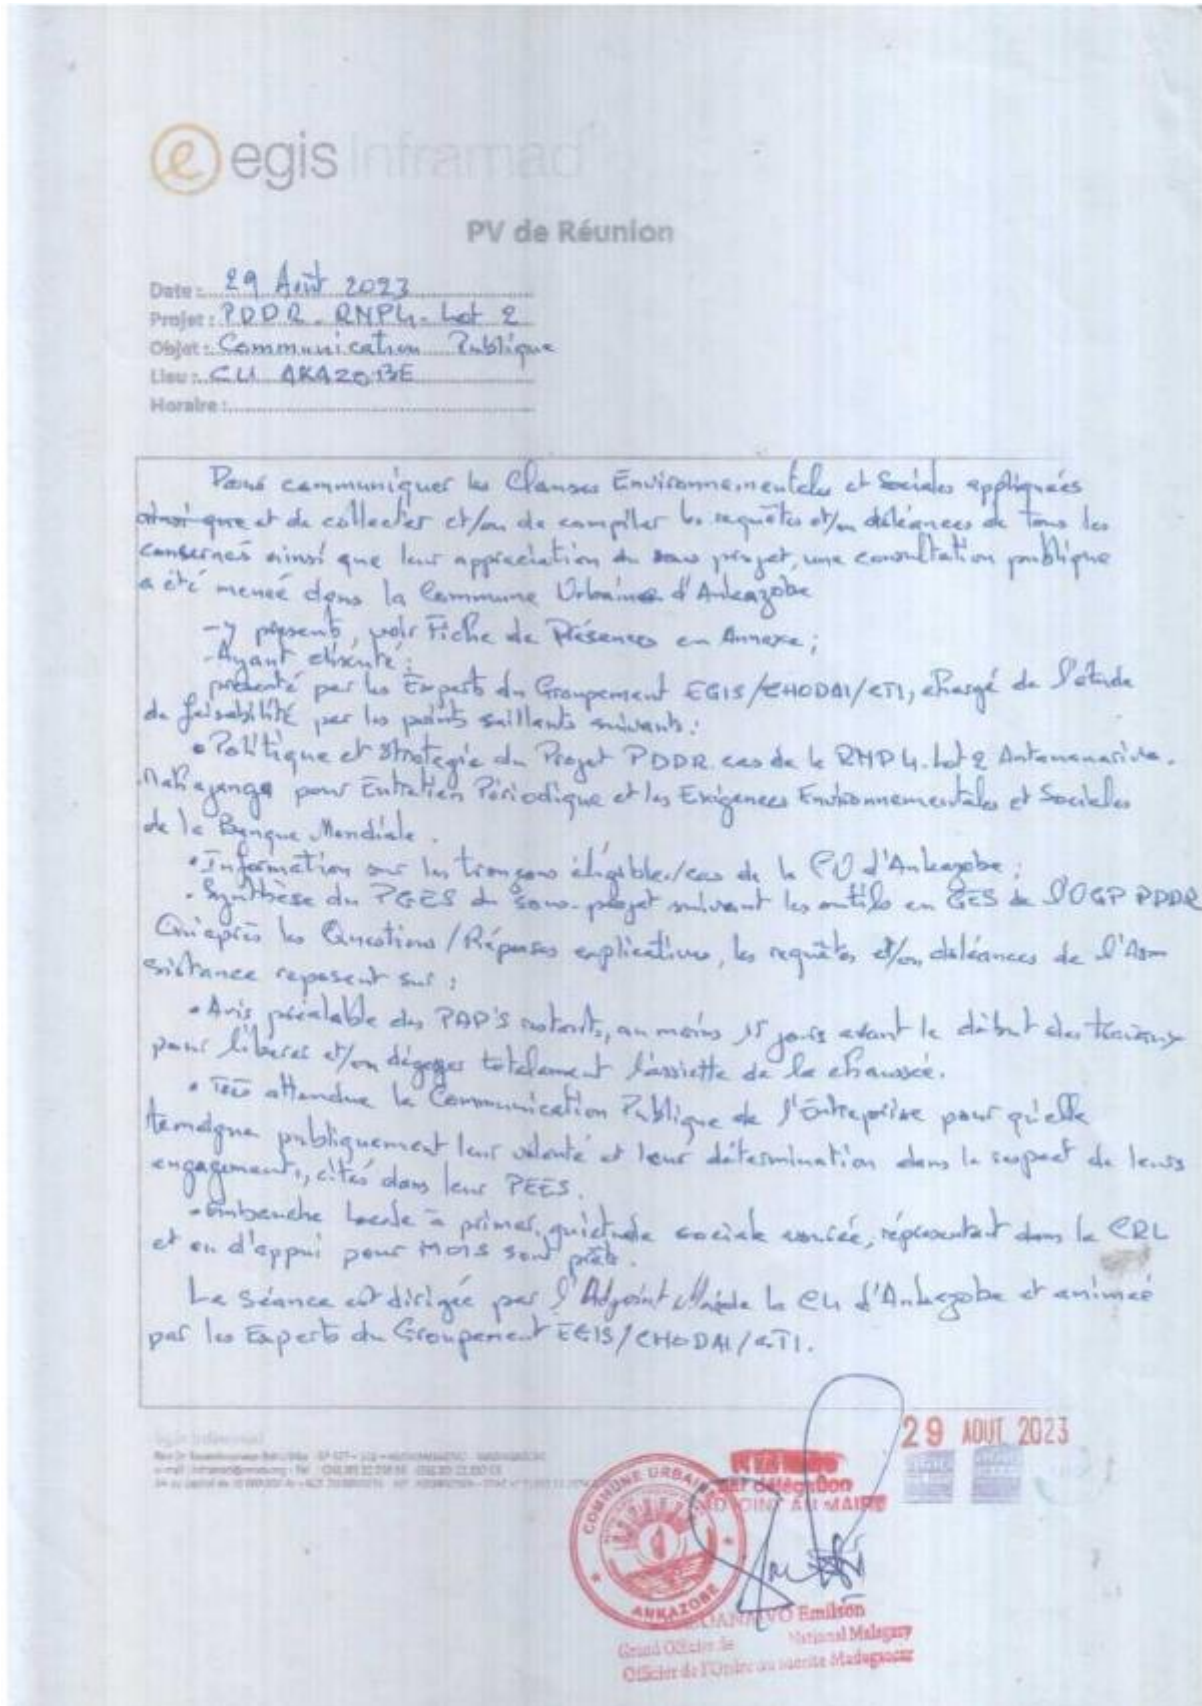 egis Inframad
PV de Réunion
Date : 29 Août 2023
Projet : PDDR - RNP4 - Lot 2
Objet : Communication Publique
Lieu : CU AKAZOBE
Horaire :
Pour communiquer les Clauses Environnementales et Sociales appliquées
ainsi que et de collecter et/ou de compiler les requêtes et/ou doléances de tous les
concernés ainsi que leur appréciation du sous projet, une consultation publique
a été menée dans la Commune Urbaine d'Ankazobe
- y présents, voir Fiche de Présences en Annexe ;
- Ayant discuté :
présenté par les Experts du Groupement EGIS/CHODAI/ETI, chargé de l'étude
de faisabilité par les points saillants suivants :
• Politique et stratégie du Projet PDDR cas de la RNP4. Lot 2 Antananarivo.
Mahajanga pour Entretien Périodique et les Exigences Environnementales et Sociales
de la Banque Mondiale.
• Information sur les tronçons éligibles/cas de la CU d'Ankazobe ;
• Synthèse du PGES du sous-projet suivant les outils en GES de l'OGP PDDR
Qu'après les Questions/Réponses explicatives, les requêtes et/ou doléances de l'Assi
sistance reposent sur :
• Avis préalable des PAP'S au moins 15 jours avant le début des travaux
pour libérer et/ou dégager totalement l'assiette de la chaussée.
• Très attendue la Communication Publique de l'Entreprise pour qu'elle
témoigne publiquement leur volonté et leur détermination dans le respect de leurs
engagements, cités dans leur PEES.
• Embauche locale à primer, quiétude sociale représentant dans le CRL
et en d'appui pour MOIS sont prêts.
La séance est dirigée par l'Adjoint Maire de la CU d'Ankazobe et animée
par les Experts du Groupement EGIS/CHODAI/ETI.
29 AOUT 2023
par délégation
ADJOINT AU MAIRE
COMMUNE URBAINE
ANKAZOBE
Emilson
Grand Officier de National Malagasy
Officier de l'Ordre du mérite Madagascar